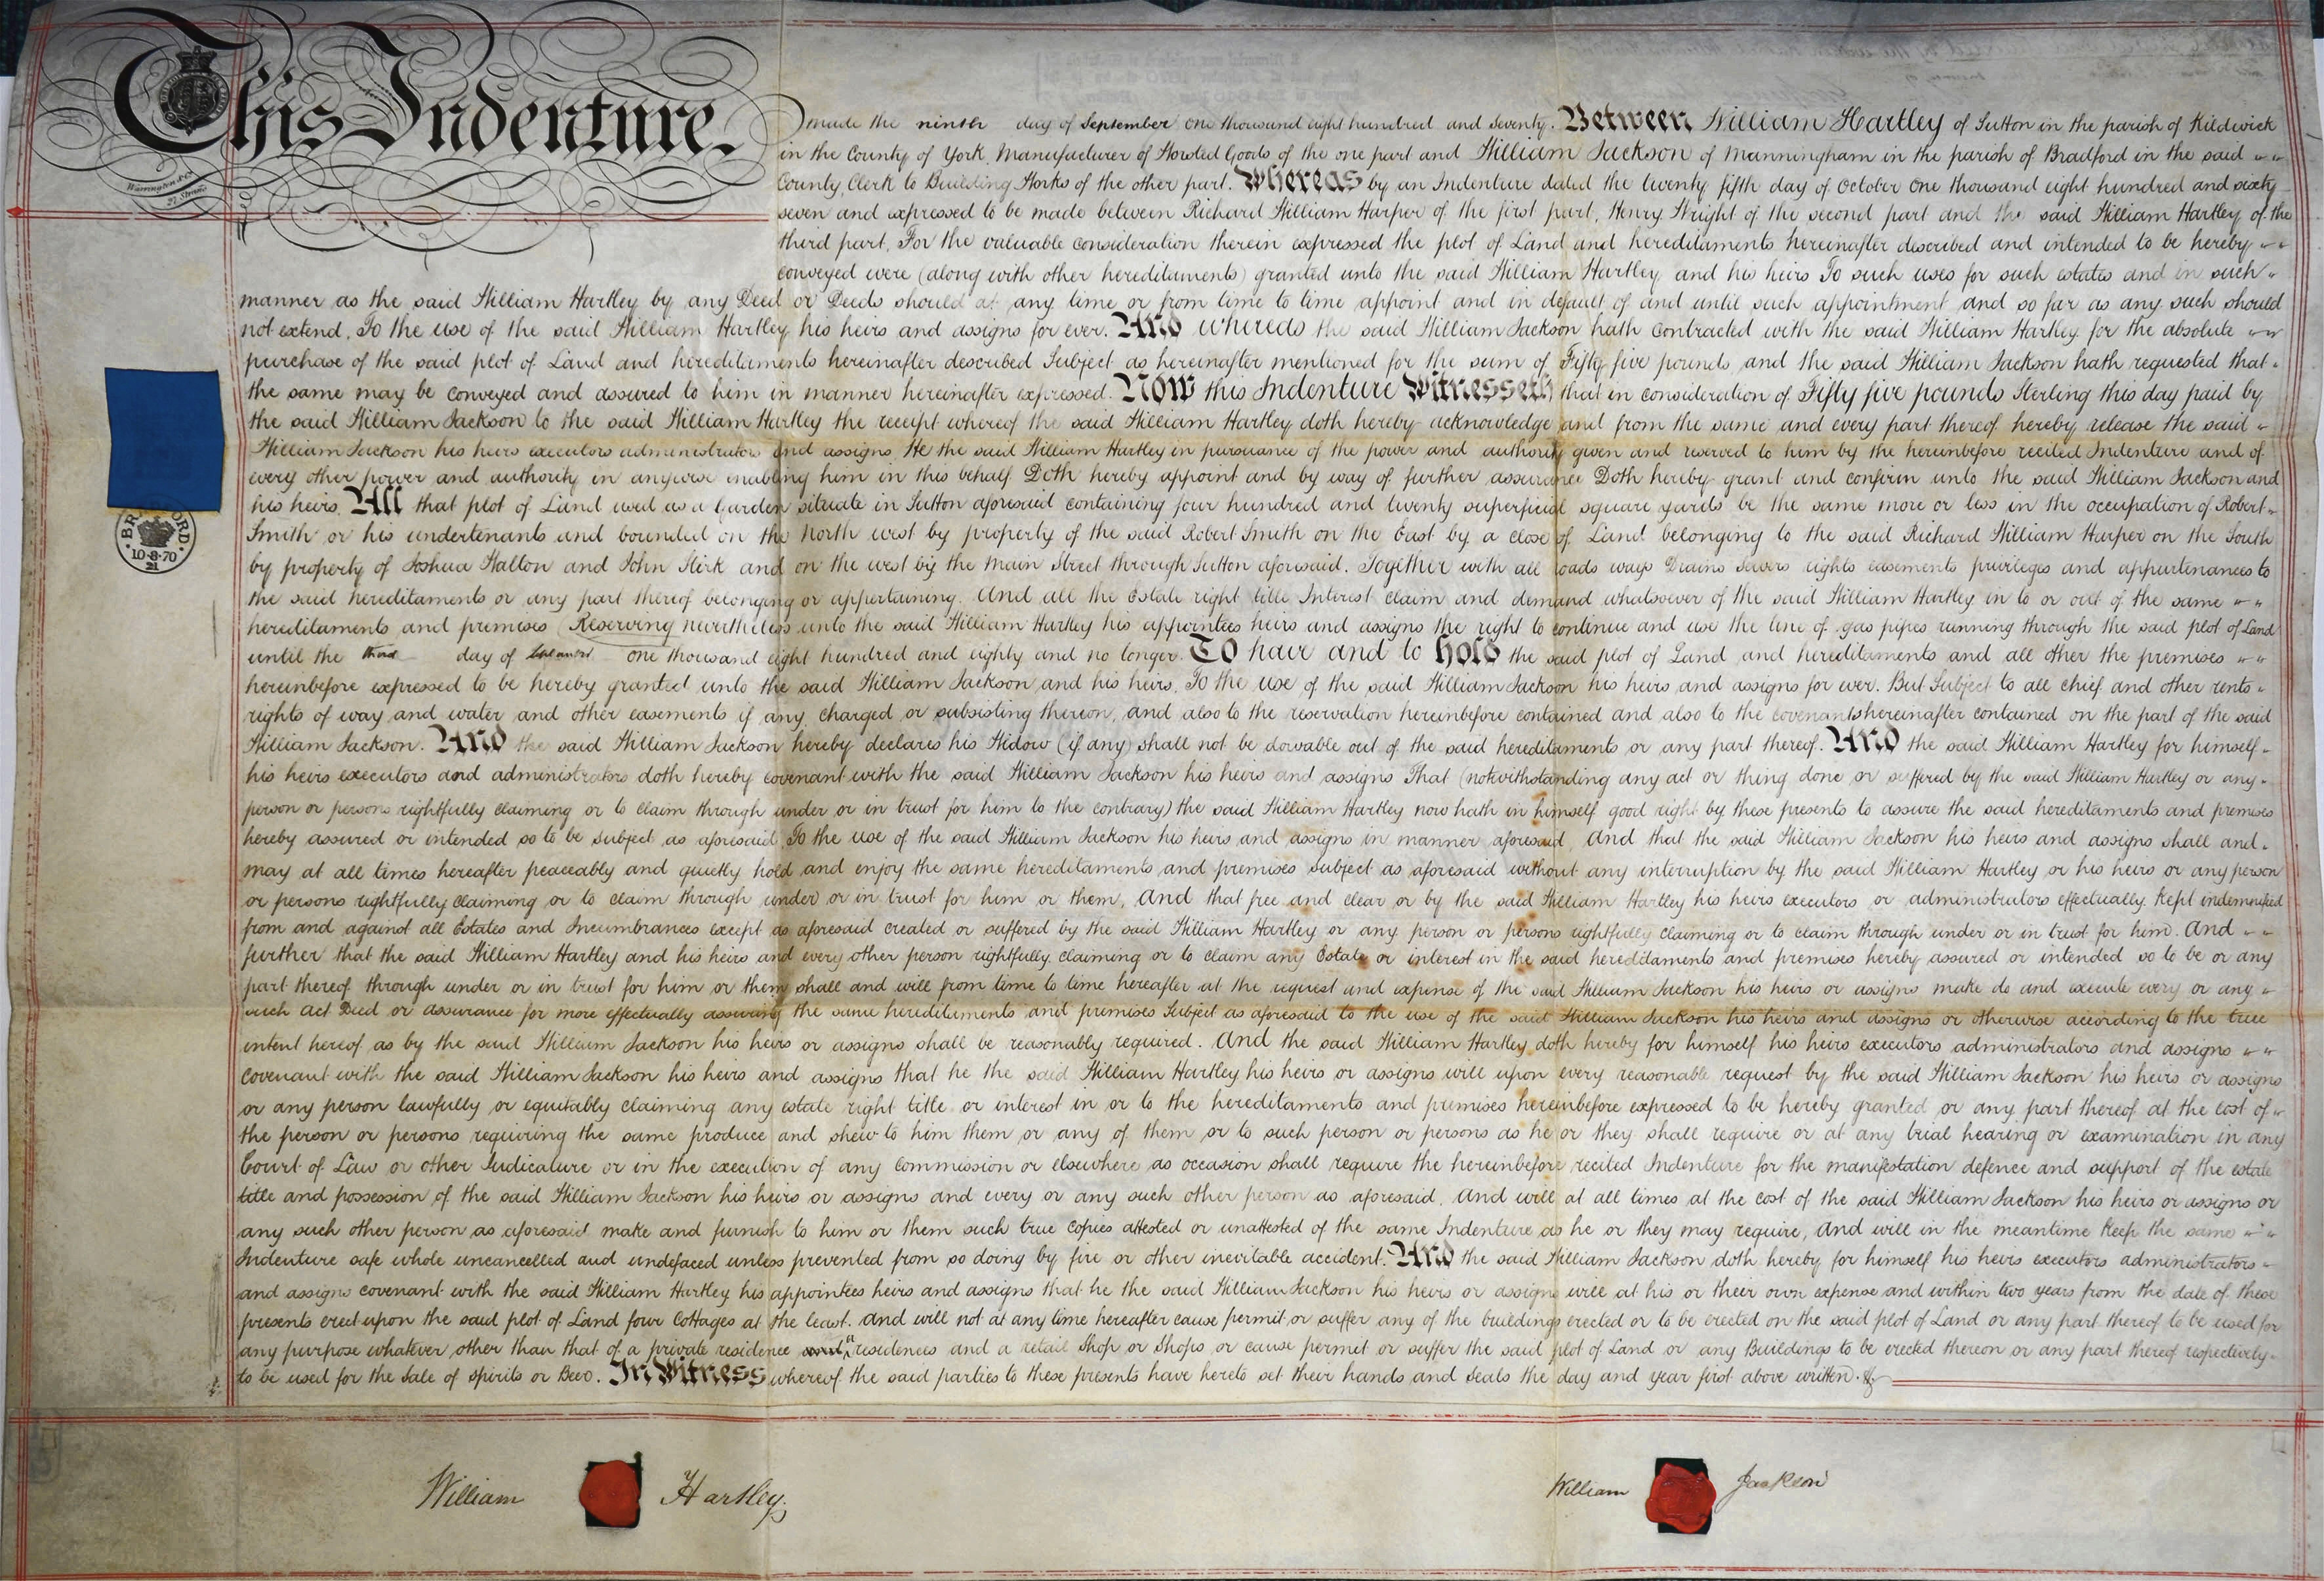 This Indenture
Warrington & Co.
27 Strand
made the ninth day of September one thousand eight hundred and seventy. Between William Hartley of Sutton in the parish of Kildwick
in the County of York, Manufacturer of Worsted Goods of the one part and William Jackson of Manningham in the parish of Bradford in the said
County, Clerk to Building Works of the other part. Whereas by an Indenture dated the twenty fifth day of October one thousand eight hundred and sixty
seven and expressed to be made between Richard William Harper of the first part, Henry Wright of the second part and the said William Hartley of the
third part, For the valuable consideration therein expressed the plot of Land and hereditaments hereinafter described and intended to be hereby
conveyed were (along with other hereditaments) granted unto the said William Hartley and his heirs To such uses for such estates and in such
manner as the said William Hartley by any Deed or Deeds should at any time or from time to time appoint and in default of and until such appointment and so far as any such should
not extend, To the use of the said William Hartley his heirs and assigns for ever. And whereas the said William Jackson hath contracted with the said William Hartley for the absolute
purchase of the said plot of Land and hereditaments hereinafter described Subject as hereinafter mentioned for the sum of Fifty five pounds and the said William Jackson hath requested that
the same may be conveyed and assured to him in manner hereinafter expressed. Now this Indenture Witnesseth that in consideration of Fifty five pounds Sterling this day paid by
the said William Jackson to the said William Hartley the receipt whereof the said William Hartley doth hereby acknowledge and from the same and every part thereof hereby release the said
William Jackson his heirs executors administrators and assigns, He the said William Hartley in pursuance of the power and authority given and reserved to him by the hereinbefore recited Indenture and of
every other power and authority in anywise enabling him in this behalf Doth hereby appoint and by way of further assurance Doth hereby grant and confirm unto the said William Jackson and
his heirs. All that plot of Land used as a Garden situate in Sutton aforesaid containing four hundred and twenty superficial square yards be the same more or less in the occupation of Robert
Smith or his undertenants and bounded on the North west by property of the said Robert Smith on the East by a close of Land belonging to the said Richard William Harper on the South
by property of Joshua Walton and John Kirk and on the west by the Main Street through Sutton aforesaid. Together with all roads ways Drains Sewers rights easements privileges and appurtenances to
the said hereditaments or any part thereof belonging or appertaining. And all the Estate right title Interest claim and demand whatsoever of the said William Hartley in to or out of the same
hereditaments and premises (Reserving nevertheless unto the said William Hartley his appointees heirs and assigns the right to continue and use the line of gas pipes running through the said plot of Land
until the third day of one thousand eight hundred and eighty and no longer. To have and to hold the said plot of Land and hereditaments and all other the premises
hereinbefore expressed to be hereby granted unto the said William Jackson and his heirs. To the use of the said William Jackson his heirs and assigns for ever. But Subject to all chief and other rents
rights of way and water and other easements if any charged or subsisting thereon, and also to the reservation hereinbefore contained and also to the covenants hereinafter contained on the part of the said
William Jackson. And the said William Jackson hereby declares his Widow (if any) shall not be dowable out of the said hereditaments or any part thereof. And the said William Hartley for himself
his heirs executors and administrators doth hereby covenant with the said William Jackson his heirs and assigns That (notwithstanding any act or thing done or suffered by the said William Hartley or any
person or persons rightfully claiming or to claim through under or in trust for him to the contrary) the said William Hartley now hath in himself good right by these presents to assure the said hereditaments and premises
hereby assured or intended so to be subject as aforesaid To the use of the said William Jackson his heirs and assigns in manner aforesaid, And that the said William Jackson his heirs and assigns shall and
may at all times hereafter peaceably and quietly hold and enjoy the same hereditaments and premises subject as aforesaid without any interruption by the said William Hartley or his heirs or any person
or persons rightfully claiming or to claim through under or in trust for him or them, And that free and clear or by the said William Hartley his heirs executors or administrators effectually kept indemnified
from and against all Estates and Incumbrances except as aforesaid created or suffered by the said William Hartley or any person or persons rightfully claiming or to claim through under or in trust for him. And
further that the said William Hartley and his heirs and every other person rightfully claiming or to claim any Estate or interest in the said hereditaments and premises hereby assured or intended so to be or any
part thereof through under or in trust for him or them shall and will from time to time hereafter at the request and expense of the said William Jackson his heirs or assigns make do and execute every or any
such Act Deed or assurance for more effectually assuring the same hereditaments and premises Subject as aforesaid to the use of the said William Jackson his heirs and assigns or otherwise according to the true
intent hereof as by the said William Jackson his heirs or assigns shall be reasonably required. And the said William Hartley doth hereby for himself his heirs executors administrators and assigns
covenant with the said William Jackson his heirs and assigns that he the said William Hartley his heirs or assigns will upon every reasonable request by the said William Jackson his heirs or assigns
or any person lawfully or equitably claiming any estate right title or interest in or to the hereditaments and premises hereinbefore expressed to be hereby granted or any part thereof at the cost of
the person or persons requiring the same produce and shew to him them or any of them or to such person or persons as he or they shall require or at any trial hearing or examination in any
Court of Law or other Judicature or in the execution of any Commission or elsewhere as occasion shall require the hereinbefore recited Indenture for the manifestation defence and support of the estate
title and possession of the said William Jackson his heirs or assigns and every or any such other person as aforesaid. And will at all times at the cost of the said William Jackson his heirs or assigns or
any such other person as aforesaid make and furnish to him or them such true copies attested or unattested of the same Indenture as he or they may require, And will in the meantime keep the same
Indenture safe whole uncancelled and undefaced unless prevented from so doing by fire or other inevitable accident. And the said William Jackson doth hereby for himself his heirs executors administrators
and assigns covenant with the said William Hartley his appointees heirs and assigns that he the said William Jackson his heirs or assigns will at his or their own expense and within two years from the date of these
presents erect upon the said plot of Land four Cottages at the least. And will not at any time hereafter cause permit or suffer any of the buildings erected or to be erected on the said plot of Land or any part thereof to be used for
any purpose whatever other than that of a private residence or residences and a retail Shop or Shops or cause permit or suffer the said plot of Land or any Buildings to be erected thereon or any part thereof respectively
to be used for the Sale of Spirits or Beer. In Witness whereof the said parties to these presents have hereto set their hands and seals the day and year first above written.
BRADFORD
10·8·70
21
William Hartley.
William Jackson